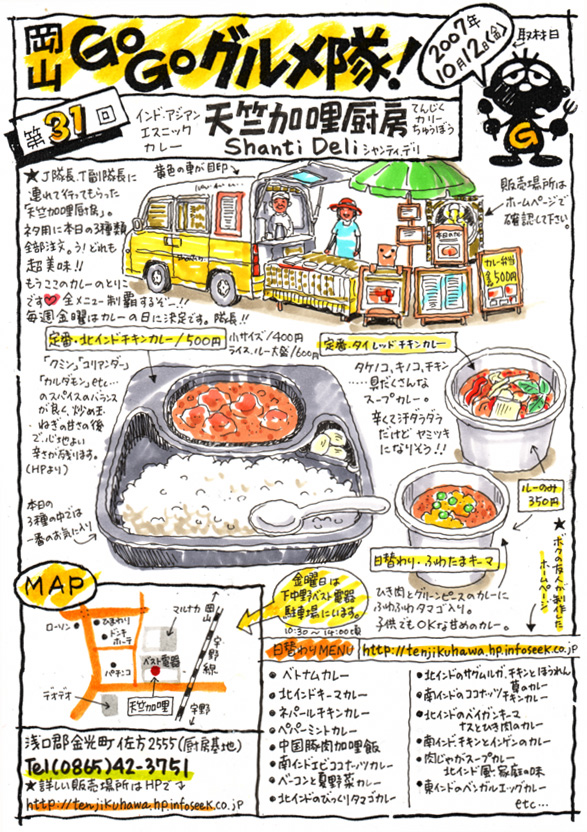 岡山 GoGoグルメ隊!
2007年
10月12日(金)
取材日
第31回
インド・アジアン
エスニック
カレー
天竺加哩厨房
てんじく
カリー
ちゅうぼう
Shanti Deli シャンティ・デリ
★J隊長、T副隊長に
連れて行ってもらった
「天竺加哩厨房」。
ネタ用に本日の3種類
全部注文。う!どれも
超美味!!
もうここのカレーのとりこ
です♥全メニュー制覇するぞー!!
毎週金曜はカレーの日に決定です。隊長!!
黄色の車が目印
本日のカレー
カレー弁当
¥500円
販売場所は
ホームページで
確認して下さい。
G
定番・北インドチキンカレー/500円
小サイズ/400円
ライス、ルー大盛/600円
「クミン」「コリアンダー」
「カルダモン」etc…
のスパイスのバランス
が良く、炒め玉
ねぎの甘さの後
で、心地よい
辛さが残ります。
(HPより)
本日の
3種の中では
一番のお気に入り
定番・タイレッドチキンカレー
タケノコ、キノコ、チキン
…具だくさんな
スープカレー。
辛くて汗ダラダラ
だけどヤミツキ
になりそう!!
ルーのみ
350円
日替わり・ふわたまキーマ
ひき肉とグリーンピースのカレーに
ふわふわタマゴ入り。
子供でもOKな甘めのカレー。
★ボクの友人が制作した
ホームページ
MAP
ローソン
ひまわり
ドンキ
ホーテ
マルナカ
岡山
宇野線
パチンコ
ベスト電器
デオデオ
天竺加哩
宇野
金曜日は
下中野ベスト電器
駐車場にいます。
10:30〜14:00頃
日替わりMENU
http://tenjikuhawa.hp.infoseek.co.jp
●ベトナムカレー
●北インドキーマカレー
●ネパールチキンカレー
●ペパーミントカレー
●中国豚肉加哩飯
●南インドエビココナッツカレー
●ベーコンと夏野菜カレー
●北インドのびっくりタマゴカレー
●北インドのサグムルガ、チキンとほうれん
●南インドのココナッツチキン夏のカレー
●北インドのバイガンキーマ
ナスとひき肉のカレー
●南インド、チキンとインゲンのカレー
●肉じゃがスープカレー
北インド風・家庭の味
●東インドのベンガルエッグカレー
etc…
浅口郡金光町佐方2555(厨房基地)
Tel(0865)42-3751
★詳しい販売場所はHPで↓
http://tenjikuhawa.hp.infoseek.co.jp